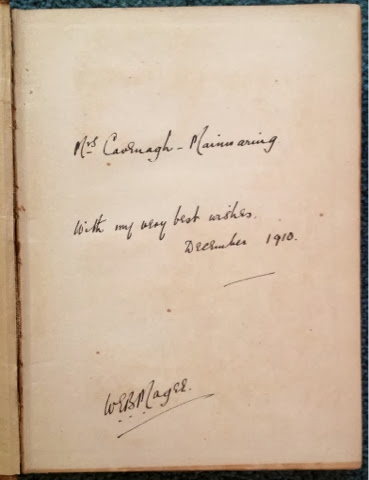 Mrs Cavenagh - Mainwaring
With my very best wishes.
December 1910.
W.E.B. Magee.